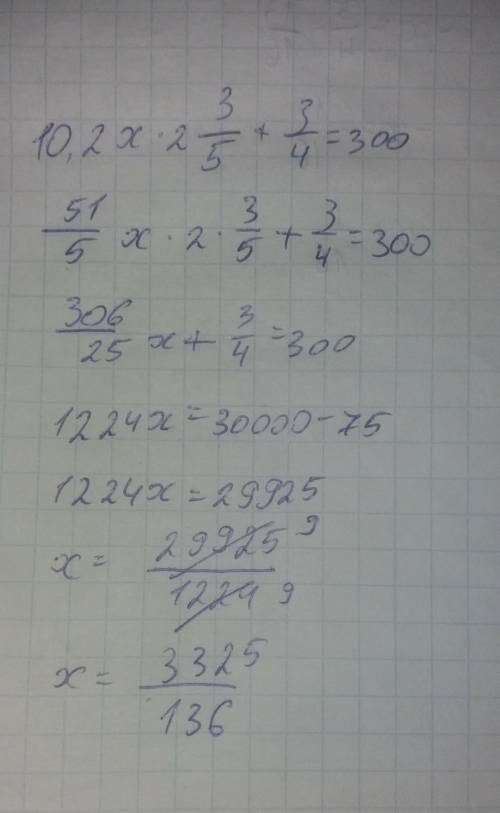 10,2x · 2 3/5 + 3/4 = 300
51/5 x · 2 · 3/5 + 3/4 = 300
306/25 x + 3/4 = 300
1224x = 30000 - 75
1224x = 29925
x = 29925/1224 9 9
x = 3325/136